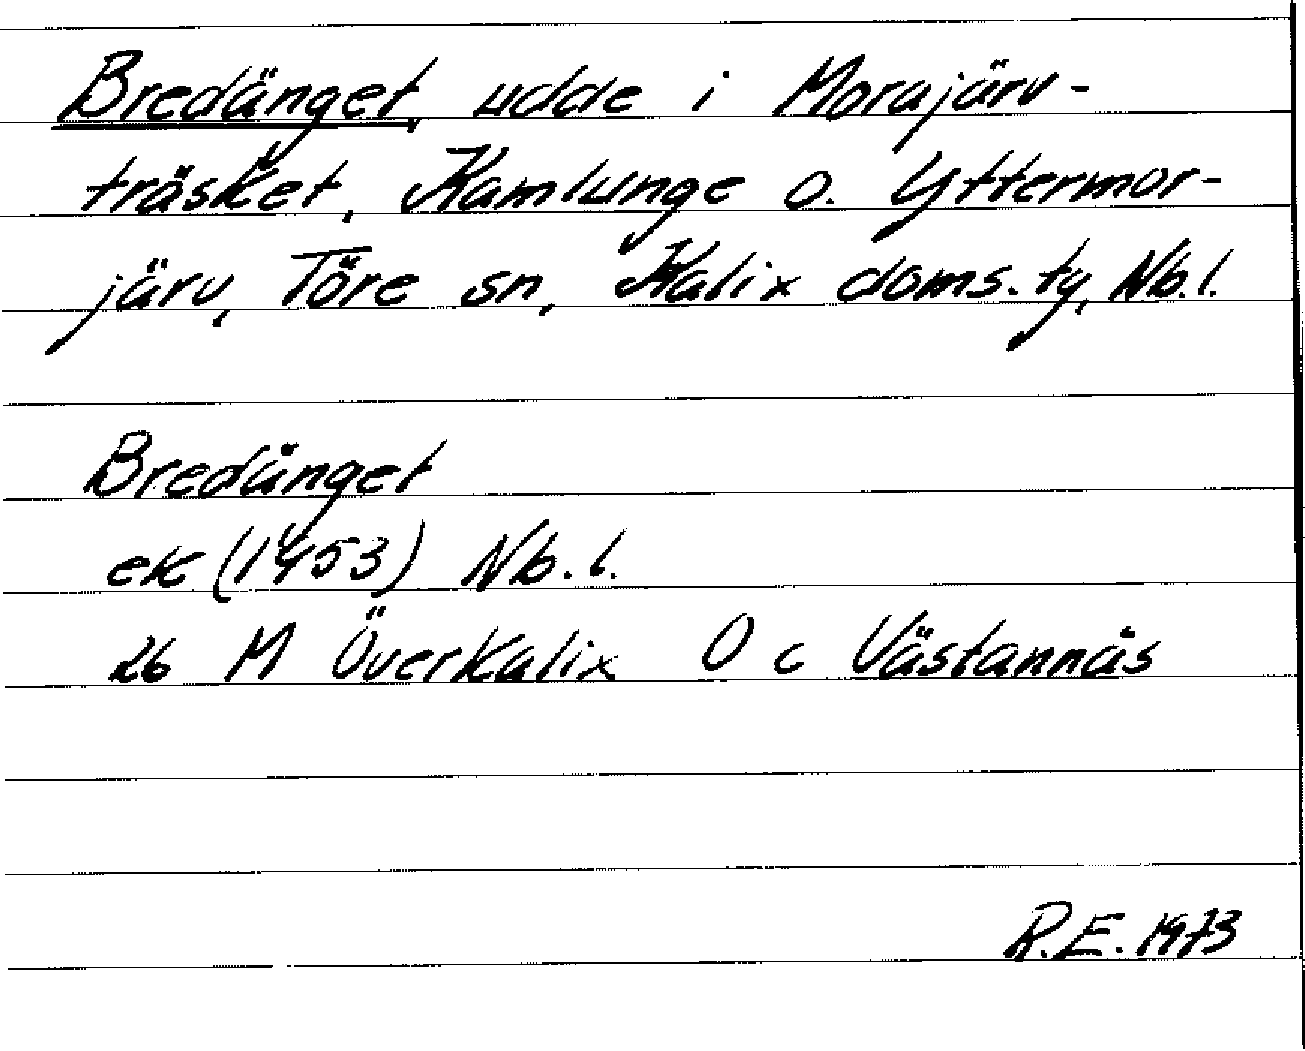 Bredänget, udde i Morajärv-
träsket, Kamlunge o. Yttermor-
järv, Töre sn, Kalix doms. tg, Nb.l.
Bredänget
ek (1953) Nb.l.
26 M Överkalix O c Västannäs
R.E. 1973